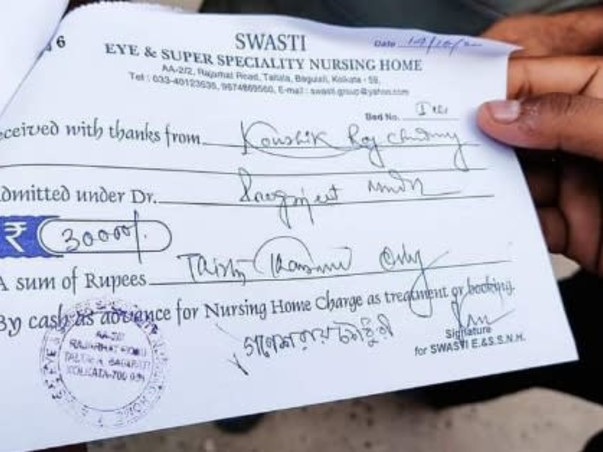 6
SWASTI
Date 14/10/2
EYE & SUPER SPECIALITY NURSING HOME
AA-2/2, Rajarhat Road, Taltala, Baguiati, Kolkata - 59,
Tel : 033-40123535, 9674869560, E-mail : swasti.group@yahoo.com
Bed No.
eceived with thanks from Koushik Roy Chowdhury
dmitted under Dr.
₹ 30000/-
A sum of Rupees Thirty thousand only
By cash as advance for Nursing Home Charge as treatment or booking.
Signature
for SWASTI E.&S.S.N.H.
AA-2/2
RAJARHAT ROAD
TALTALA, BAGUIATI
KOLKATA-700 059